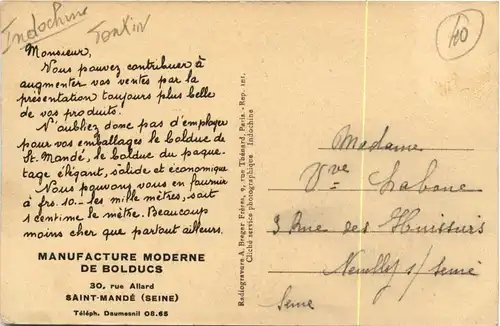 Indochine
Tonkin
40
Monsieur,
Vous pouvez contribuer à
augmenter vos ventes par la
présentation toujours plus belle
de vos produits.
N'oubliez donc pas d'employer
pour vos emballages le bolduc de
St. Mandé, le bolduc du paque-
tage élégant, solide et économique
Nous pouvons vous en fournir
à frs. 10.- les mille mètres, soit
1 centime le mètre. Beaucoup
moins cher que partout ailleurs.
MANUFACTURE MODERNE
DE BOLDUCS
30, rue Allard
SAINT-MANDÉ (SEINE)
Téléph. Daumesnil 08.65
Radiogravure A. Breger Frères, 9, rue Thénard, Paris. - Rep. int.
Cliché service photographique Indochine
Madame
Vve Labone
3 Rue des Huissiers
Neuilly s/ Seine
Seine